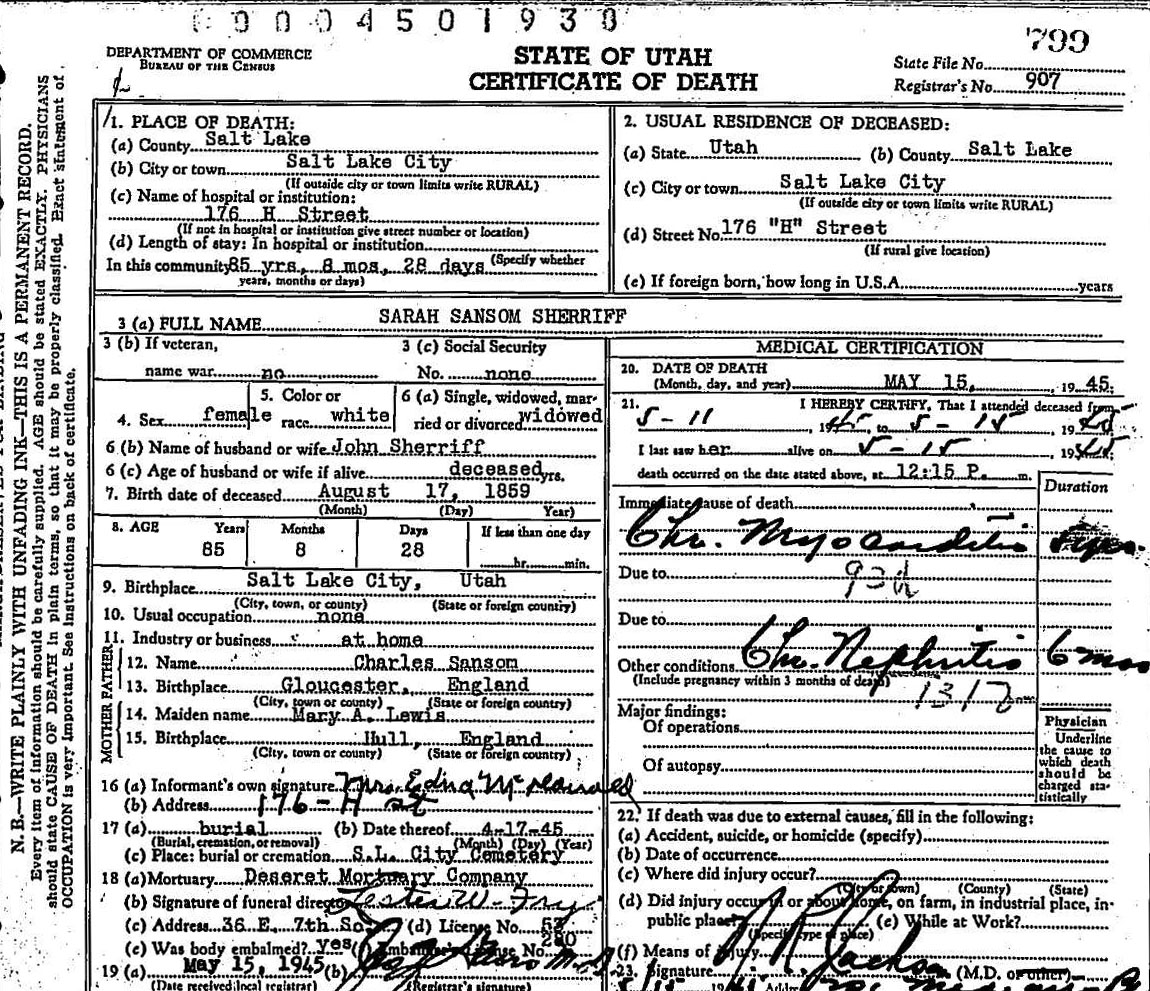 0004501930
799
DEPARTMENT OF COMMERCE
BUREAU OF THE CENSUS
STATE OF UTAH
CERTIFICATE OF DEATH
State File No.
Registrar's No. 907
N. B.—WRITE PLAINLY WITH UNFADING INK—THIS IS A PERMANENT RECORD.
Every item of information should be carefully supplied. AGE should be stated EXACTLY. PHYSICIANS
should state CAUSE OF DEATH in plain terms, so that it may be properly classified. Exact statement of
OCCUPATION is very important. See instructions on back of certificate.
1. PLACE OF DEATH:
(a) County Salt Lake
(b) City or town Salt Lake City
(If outside city or town limits write RURAL)
(c) Name of hospital or institution:
176 H Street
(If not in hospital or institution give street number or location)
(d) Length of stay: In hospital or institution
(Specify whether
In this community 85 yrs, 8 mos, 28 days
years, months or days)
2. USUAL RESIDENCE OF DECEASED:
(a) State Utah (b) County Salt Lake
(c) City or town Salt Lake City
(If outside city or town limits write RURAL)
(d) Street No. 176 "H" Street
(If rural give location)
(e) If foreign born, how long in U.S.A. years
3 (a) FULL NAME SARAH SANSOM SHERRIFF
3 (b) If veteran, 3 (c) Social Security
name war no No. none
4. Sex female 5. Color or race white 6 (a) Single, widowed, married or divorced widowed
6 (b) Name of husband or wife John Sherriff
6 (c) Age of husband or wife if alive deceased yrs.
7. Birth date of deceased August 17, 1859
(Month) (Day) Year)
8. AGE Years Months Days If less than one day
85 8 28 hr. min.
9. Birthplace Salt Lake City, Utah
(City, town, or county) (State or foreign country)
10. Usual occupation none
11. Industry or business at home
FATHER
12. Name Charles Sansom
13. Birthplace Gloucester, England
(City, town or county) (State or foreign country)
MOTHER
14. Maiden name Mary A. Lewis
15. Birthplace Hull, England
(City, town or county) (State or foreign country)
16 (a) Informant's own signature Mrs. Edna
(b) Address 176 - H st
17 (a) burial (b) Date thereof 4-17-45
(Burial, cremation, or removal) (Month) (Day) (Year)
(c) Place: burial or cremation S.L. City Cemetery
18 (a) Mortuary Deseret Mortuary Company
(b) Signature of funeral director Lester W. Fry
(c) Address 36 E. 7th So. (d) License No. 53
(e) Was body embalmed? yes Embalmer's License No.
19 (a) May 15, 1945 (b)
(Date received local registrar) (Registrar's signature)
MEDICAL CERTIFICATION
20. DATE OF DEATH
(Month, day, and year) MAY 15, 1945.
21. I HEREBY CERTIFY, That I attended deceased from
5-11, 1945 to 5-15, 1945
I last saw her alive on 5-15, 1945
death occurred on the date stated above, at 12:15 P. m.
Duration
Immediate cause of death
Chr. Myocarditis
Due to
Due to
Other conditions Chr. Nephritis 6 mos
(Include pregnancy within 3 months of death)
Major findings:
Of operations
Of autopsy
Physician
Underline
the cause to
which death
should be
charged statistically
22. If death was due to external causes, fill in the following:
(a) Accident, suicide, or homicide (specify)
(b) Date of occurrence
(c) Where did injury occur?
(City or town) (County) (State)
(d) Did injury occur in or about home, on farm, in industrial place, in
public place? (e) While at Work?
(Specify type of place)
(f) Means of Injury
23. Signature Jackson (M.D. or other)